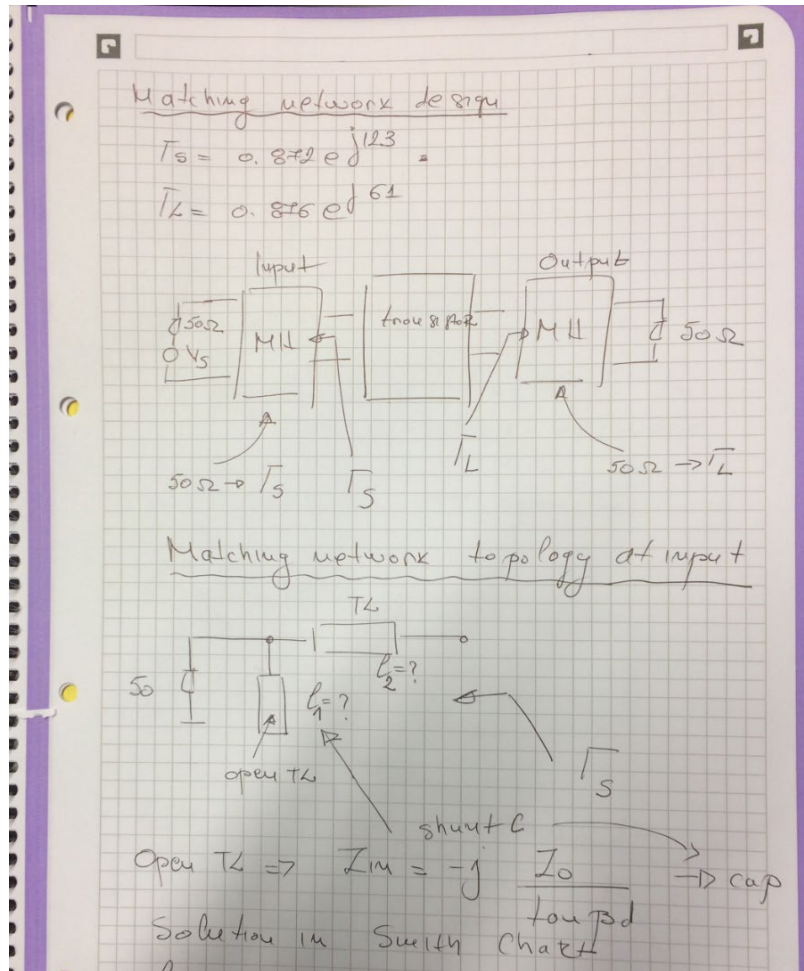 Matching network design
Γs = 0.872 e j123
ΓL = 0.876 e j 61
Input
Output
50Ω
Vs
MN
transistor
MN
50Ω
50Ω → Γs
Γs
ΓL
50Ω → ΓL
Matching network topology at input
TL
50
l1 = ?
l2 = ?
open TL
Γs
shunt C
Open TL => Zin = -j Z0 / tan βd → cap
Solution in Smith Chart